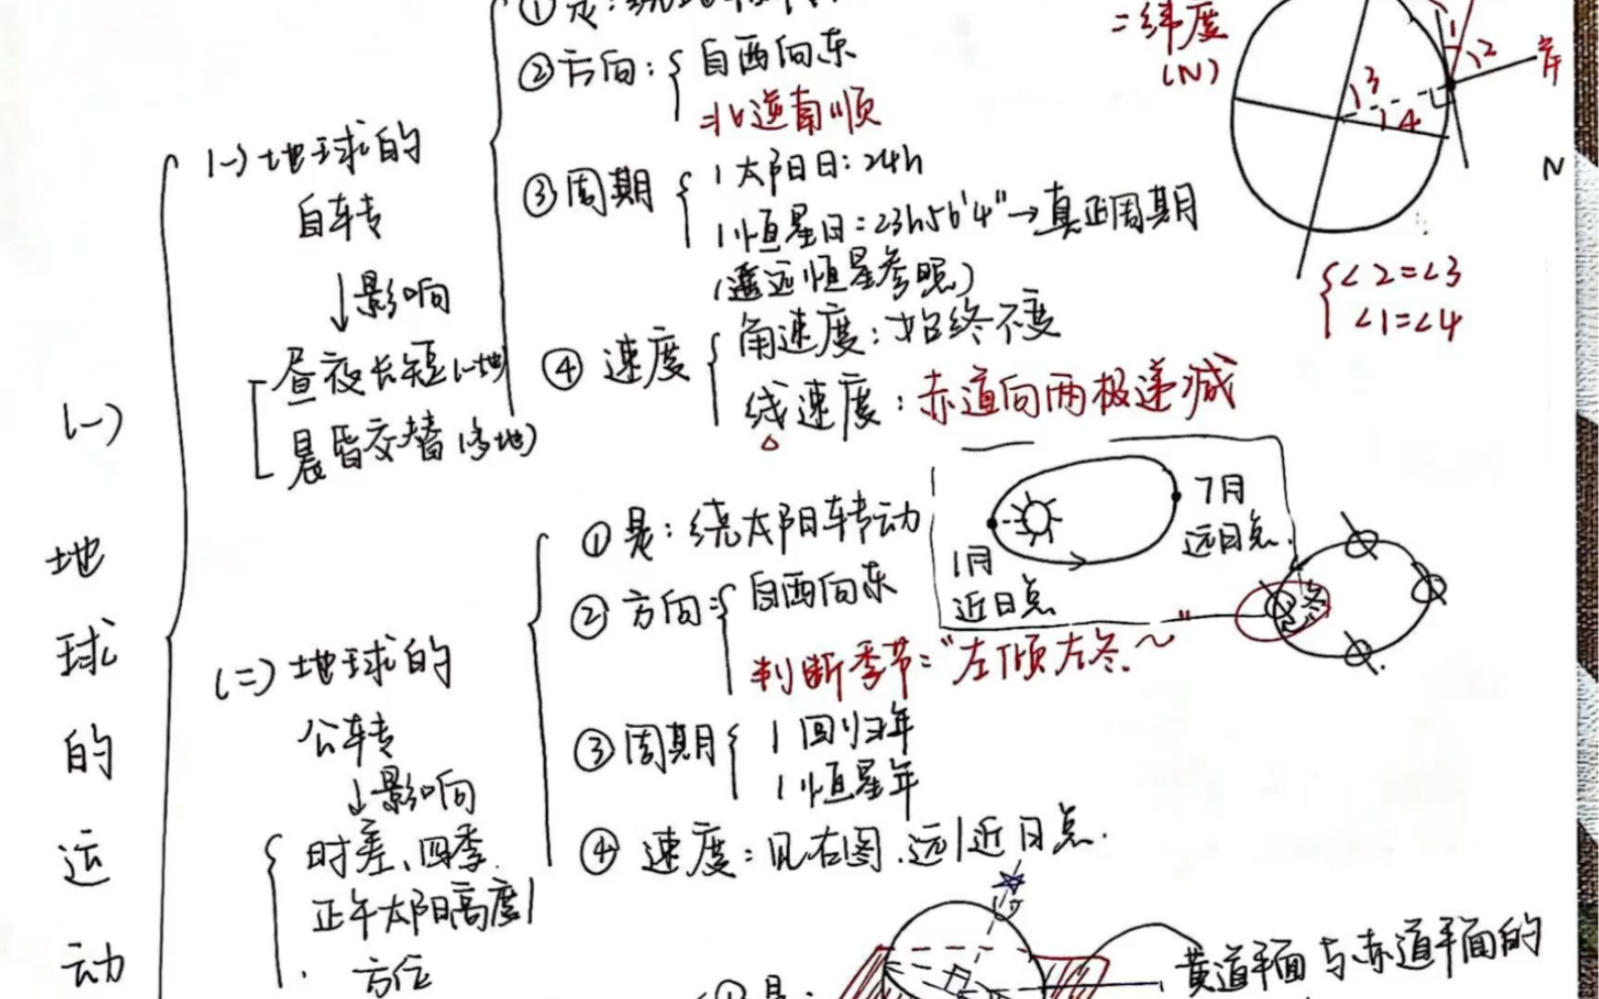 (一)
地
球
的
运
动
(一)地球的
自转
↓影响
昼夜长短(一地)
晨昏交替(多地)
②方向:
自西向东
北逆南顺
③周期
1太阳日:24h
1恒星日:23h56'4"→真正周期
(遥远恒星参照)
④速度
角速度:始终不变
线速度:赤道向两极递减
=纬度
(N)
1
2
3
4
N
∠2=∠3
∠1=∠4
(二)地球的
公转
↓影响
时差、四季
正午太阳高度
方位
①是:绕太阳转动
②方向:
自西向东
判断季节:"左倾左冬~"
③周期
1回归年
1恒星年
④速度:见右图.远/近日点.
7月
远日点.
1月
近日点
冬
①是:
黄道平面与赤道平面的